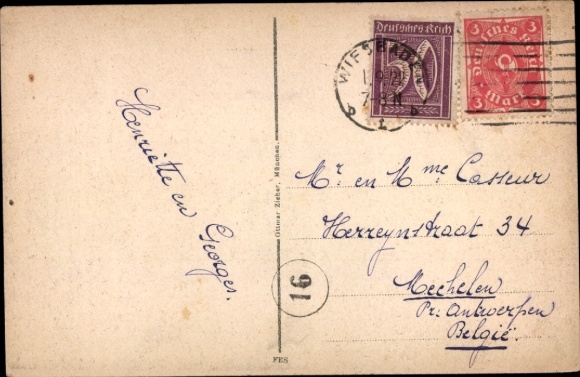 Deutsches Reich
50
3 Deutsches Reich 3
3 Mark 3
WIESBADEN
7-8 N
1
b
Henriette en
Georges.
Ottmar Zieher, München.
Mr. en Mme Casseur
Herreynstraat 34
Mechelen
Pr. Antwerpen
België.
16
FES